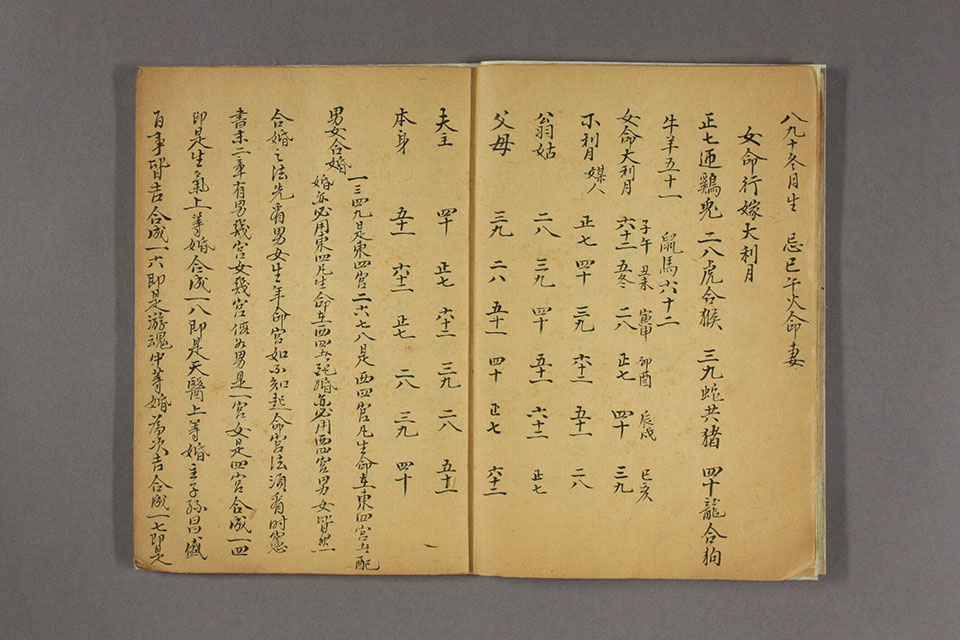 八九十冬月生　忌巳午火命妻
女命行嫁大利月
正七迊鷄兎　二八虎合猴　三九蛇共猪　四十龍合狗
牛羊五十一　鼠馬六十二
女命大利月　子午六十二　丑未五冬　寅申二八　卯酉正七　辰戌四十　巳亥三九
小利月媒人　正七　四十　三九　六十二　五十一　二八
公翁姑　二八　三九　四十　五十一　六十二　正七
父母　三九　二八　五十一　四十　正七　六十二
夫主　四十　正七　六十二　三九　二八　五十一
本身　五十一　六十二　正七　二八　三九　四十
男女合婚　一三四九是東四宮二六七八是西四宮凡生命在東四宮者配
婚亦必用東四凡生命在西四者配婚亦必用西四宮男女皆然
合婚之法先看男女生年命宮如不知起命宮法須看时憲
書末二章有男幾宮女幾宮假如男是一宮女是四宮合成一四
即是生氣上等婚合成一八即是天醫上等婚主子孫昌盛
百事皆吉合成一六即是游魂中等婚為次吉合成一七即是